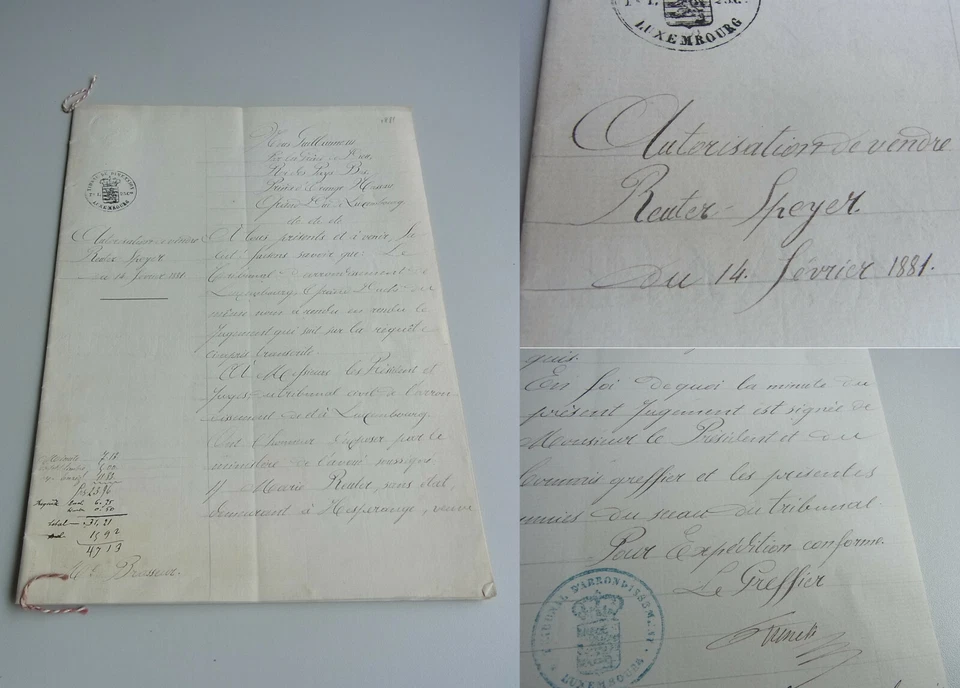 1881
Nous Guillaume III
Par la Grâce de Dieu
Roi des Pays-Bas
Prince d'Orange Nassau
Grand-Duc de Luxembourg
etc. etc. etc.
LUXEMBOURG
Autorisation de vendre
Reuter Speyer
du 14 février 1881.
A tous présents et à venir,
fait; faisons savoir que: Le
Tribunal d'arrondissement de
Luxembourg, Grand-Duché de
même nom a rendu le
Jugement qui suit sur la requête
ci-après transcrite.
A Messieurs les Président et
Juges du tribunal civil de l'arron-
dissement de Luxembourg.
Ont l'honneur d'exposer par le
ministère de l'avoué soussigné
1) Marie Reuter, sans état,
demeurant à Hesperange, veuve
6.25
0.50
total
31,21
15 92
47 13
Me Brasseur.
LUXEMBOURG
Autorisation de vendre
Reuter-Speyer.
du 14. février 1881.
quis.
En foi de quoi la minute du
présent Jugement est signée de
Monsieur le Président et du
Commis greffier et les présentes
munies du sceau du tribunal
Pour Expédition conforme.
Le Greffier
TRIBUNAL D'ARRONDISSEMENT
LUXEMBOURG